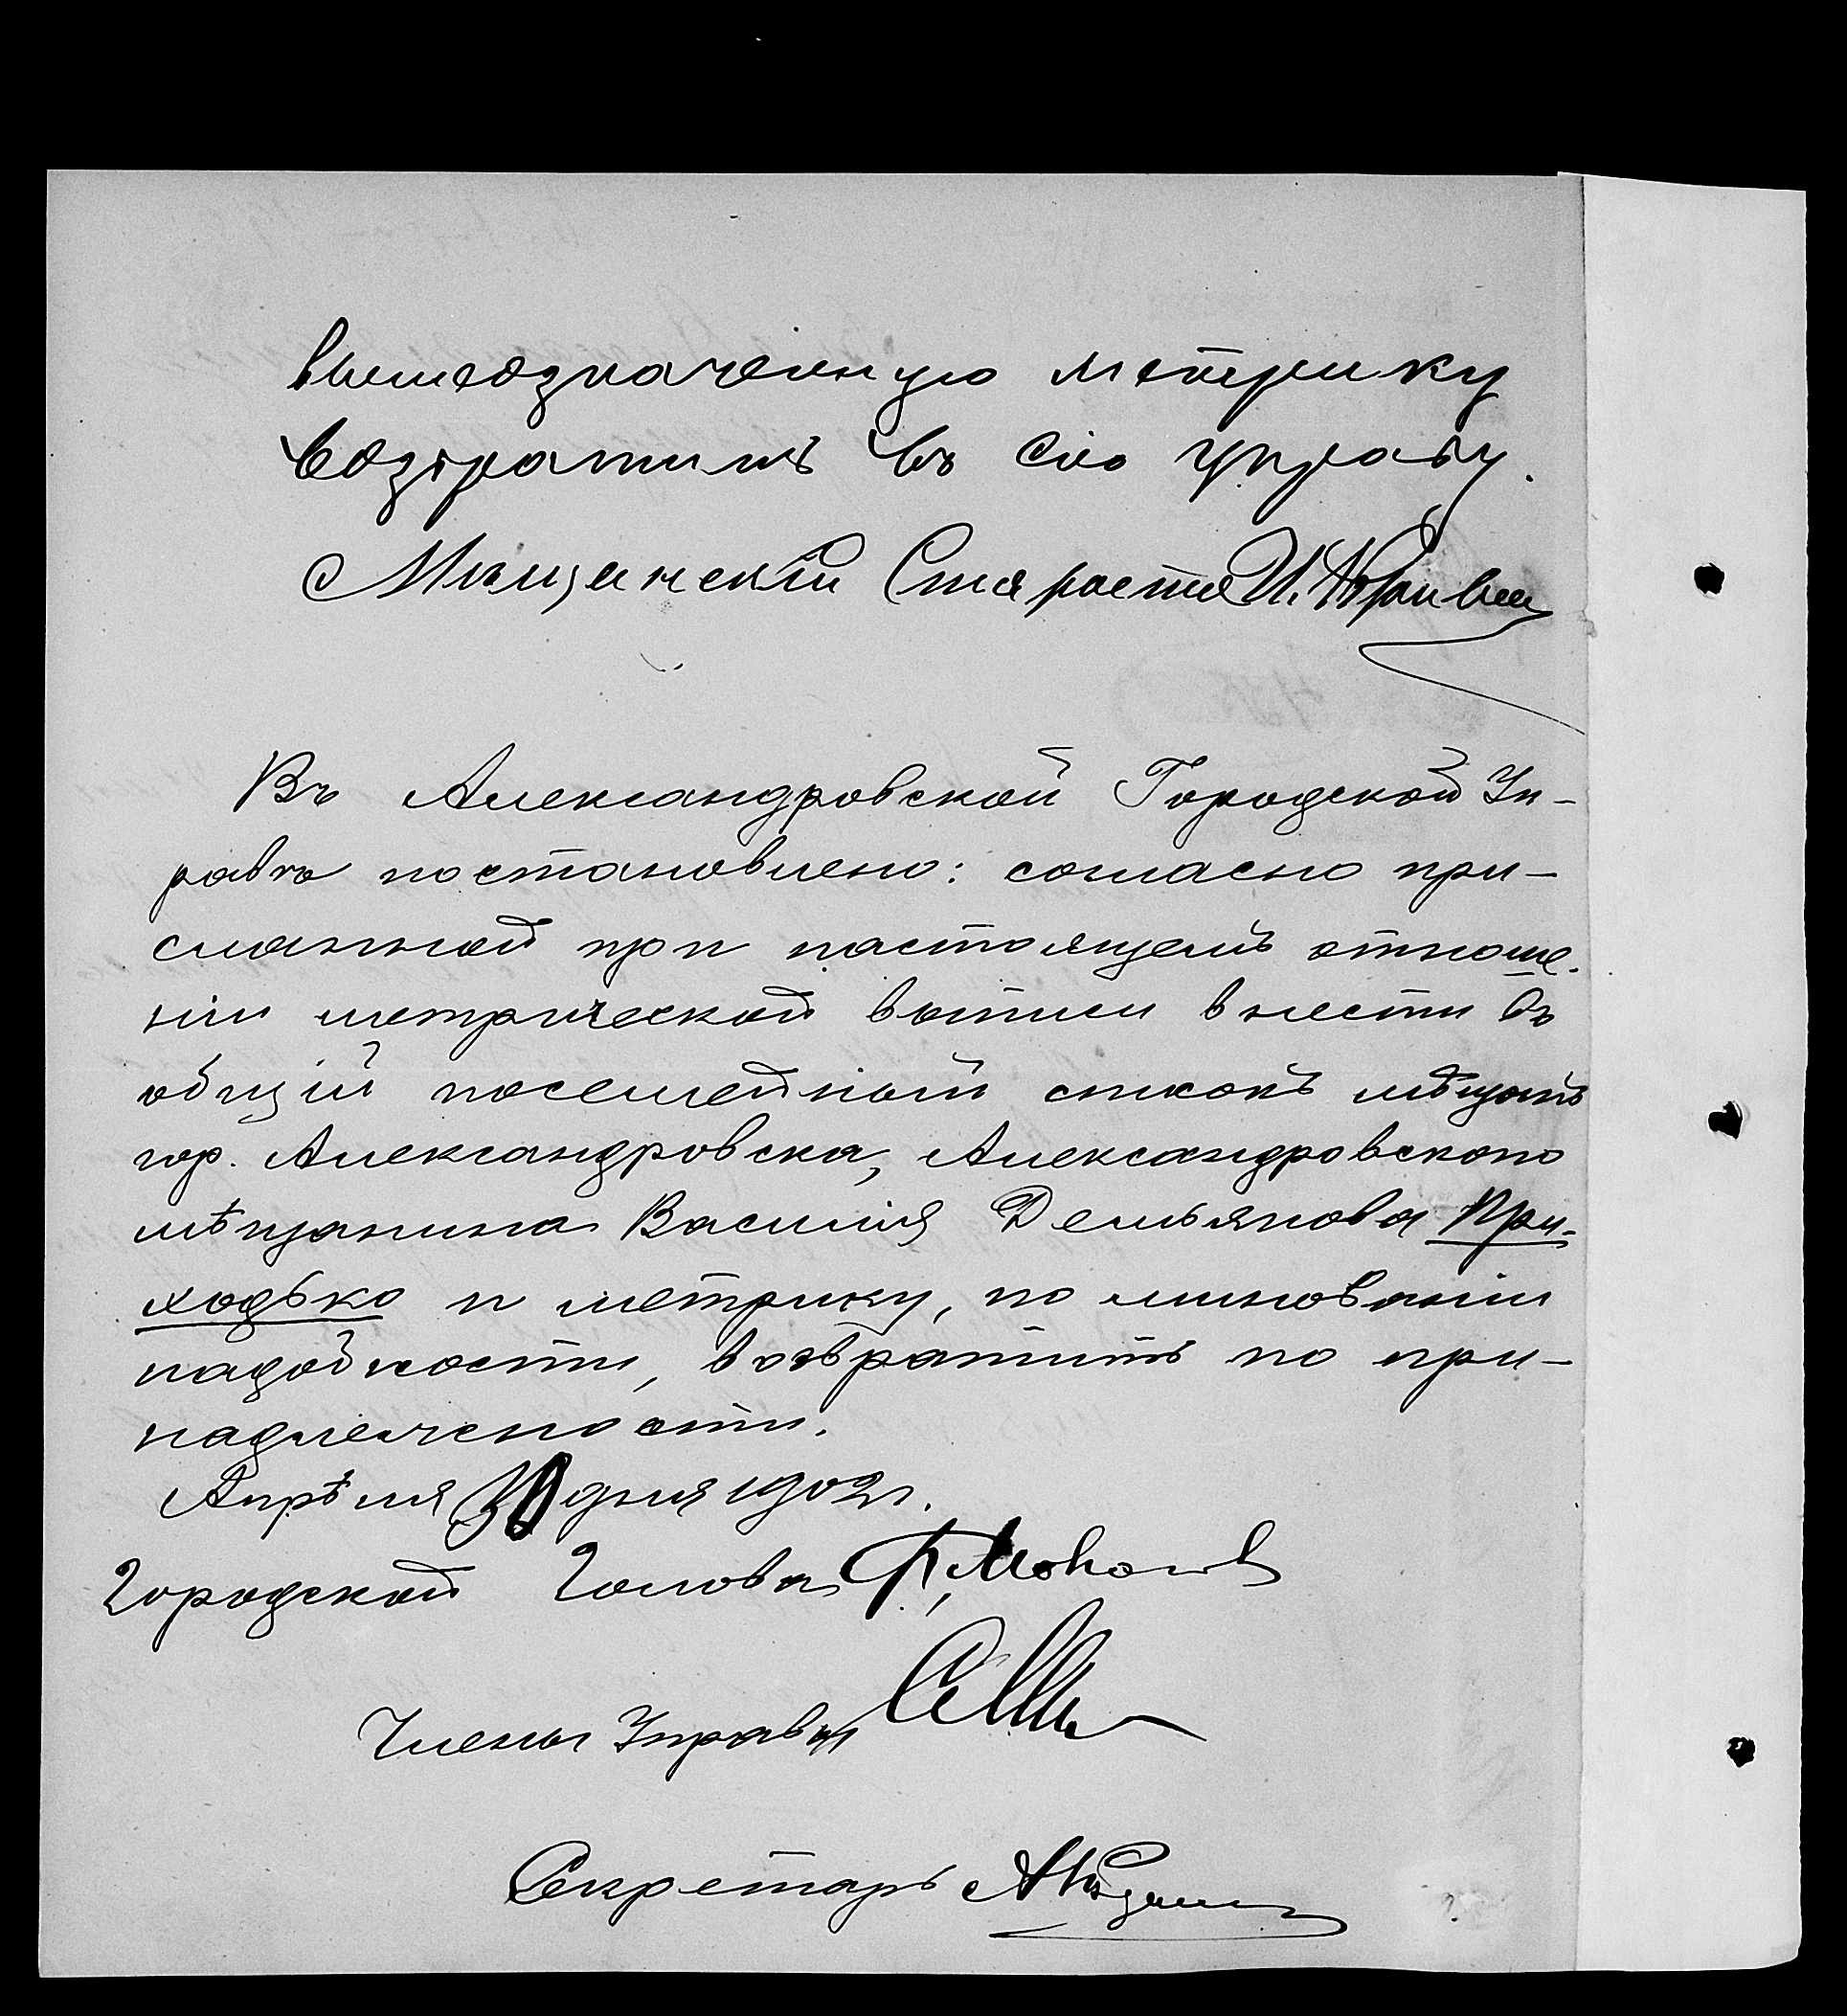 вышеозначенную метрику
возвратить въ сію управу.
Мѣщанскій Староста И.
Въ Александровской Городской Уп-
равѣ постановлено: согласно при-
сланной при настоящемъ отноше-
ніи метрической выписи внести въ
общій посемейный списокъ мѣщанъ
гор. Александровска, Александровскаго
мѣщанина Василія Демьянова При-
ходько и метрику, по минованіи
надобности, возвратить по при-
надлежности.
Апрѣля 30 дня 1902 г.
Городской Голова Ф. Мовчанов
Члены Управы
Секретарь